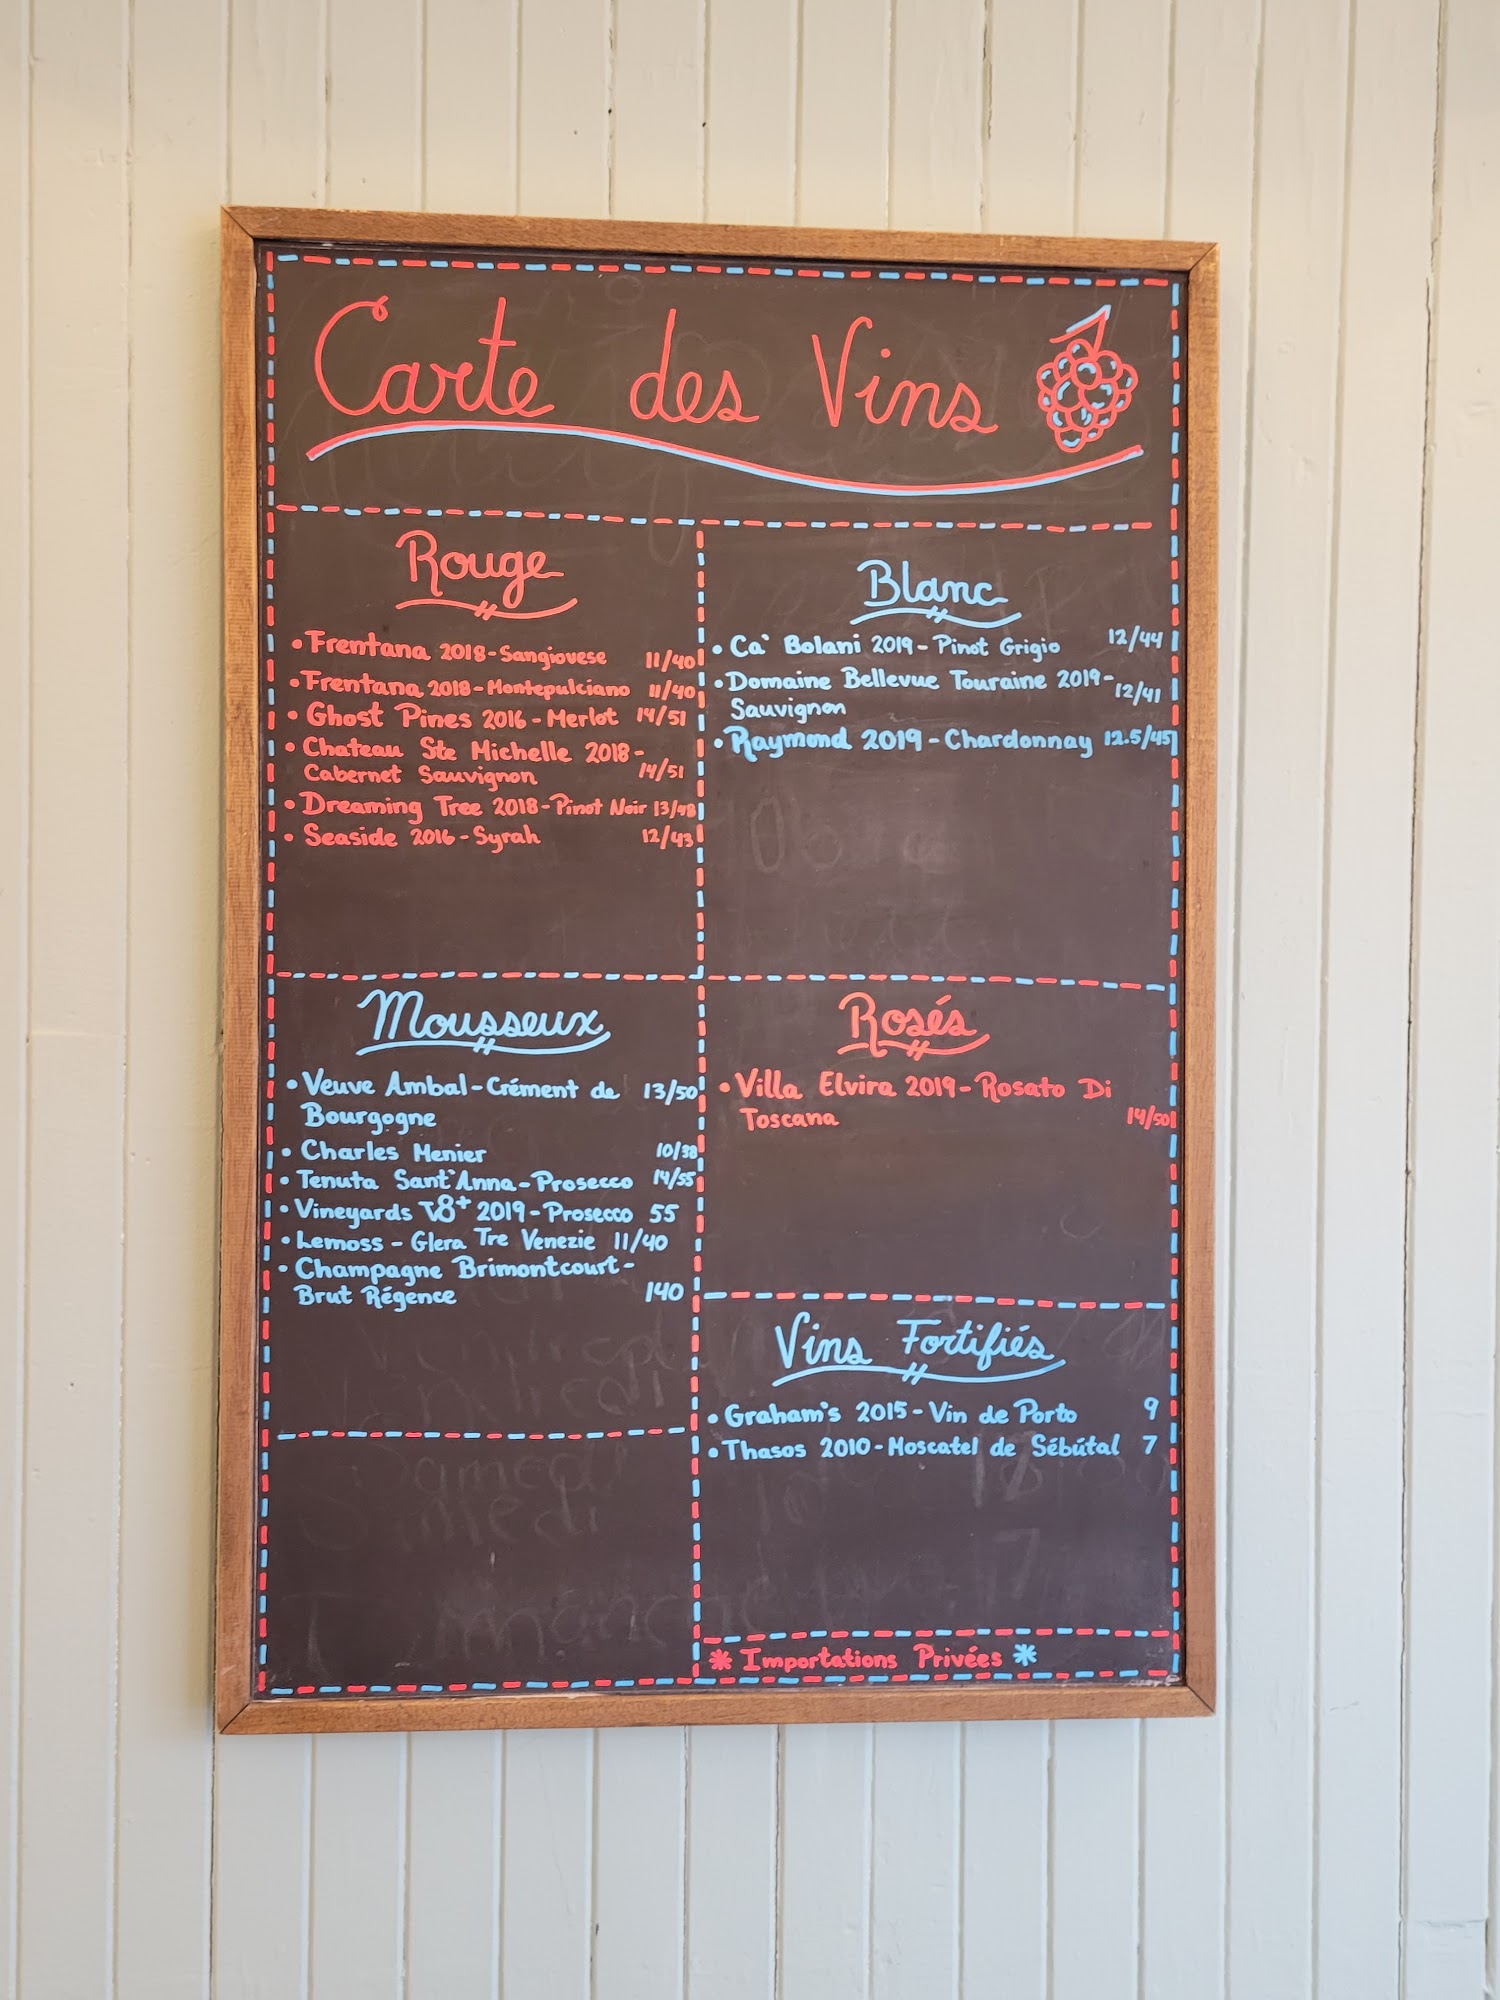 Carte des Vins
Rouge
• Frentana 2018 - Sangiovese 11/40
• Frentana 2018 - Montepulciano 11/40
• Ghost Pines 2016 - Merlot 14/51
• Chateau Ste Michelle 2018 -
Cabernet Sauvignon 14/51
• Dreaming Tree 2018 - Pinot Noir 13/48
• Seaside 2016 - Syrah 12/43
Blanc
• Ca' Bolani 2019 - Pinot Grigio 12/44
• Domaine Bellevue Touraine 2019 - 12/41
Sauvignon
• Raymond 2019 - Chardonnay 12.5/45
Mousseux
• Veuve Ambal - Crément de 13/50
Bourgogne
• Charles Menier 10/38
• Tenuta Sant'Anna - Prosecco 14/55
• Vineyards V8+ 2019 - Prosecco 55
• Lemoss - Glera Tre Venezie 11/40
• Champagne Brimontcourt -
Brut Régence 140
Rosés
• Villa Elvira 2019 - Rosato Di
Toscana 14/50
Vins Fortifiés
• Graham's 2015 - Vin de Porto 9
• Thasos 2010 - Moscatel de Sébútal 7
* Importations Privées *